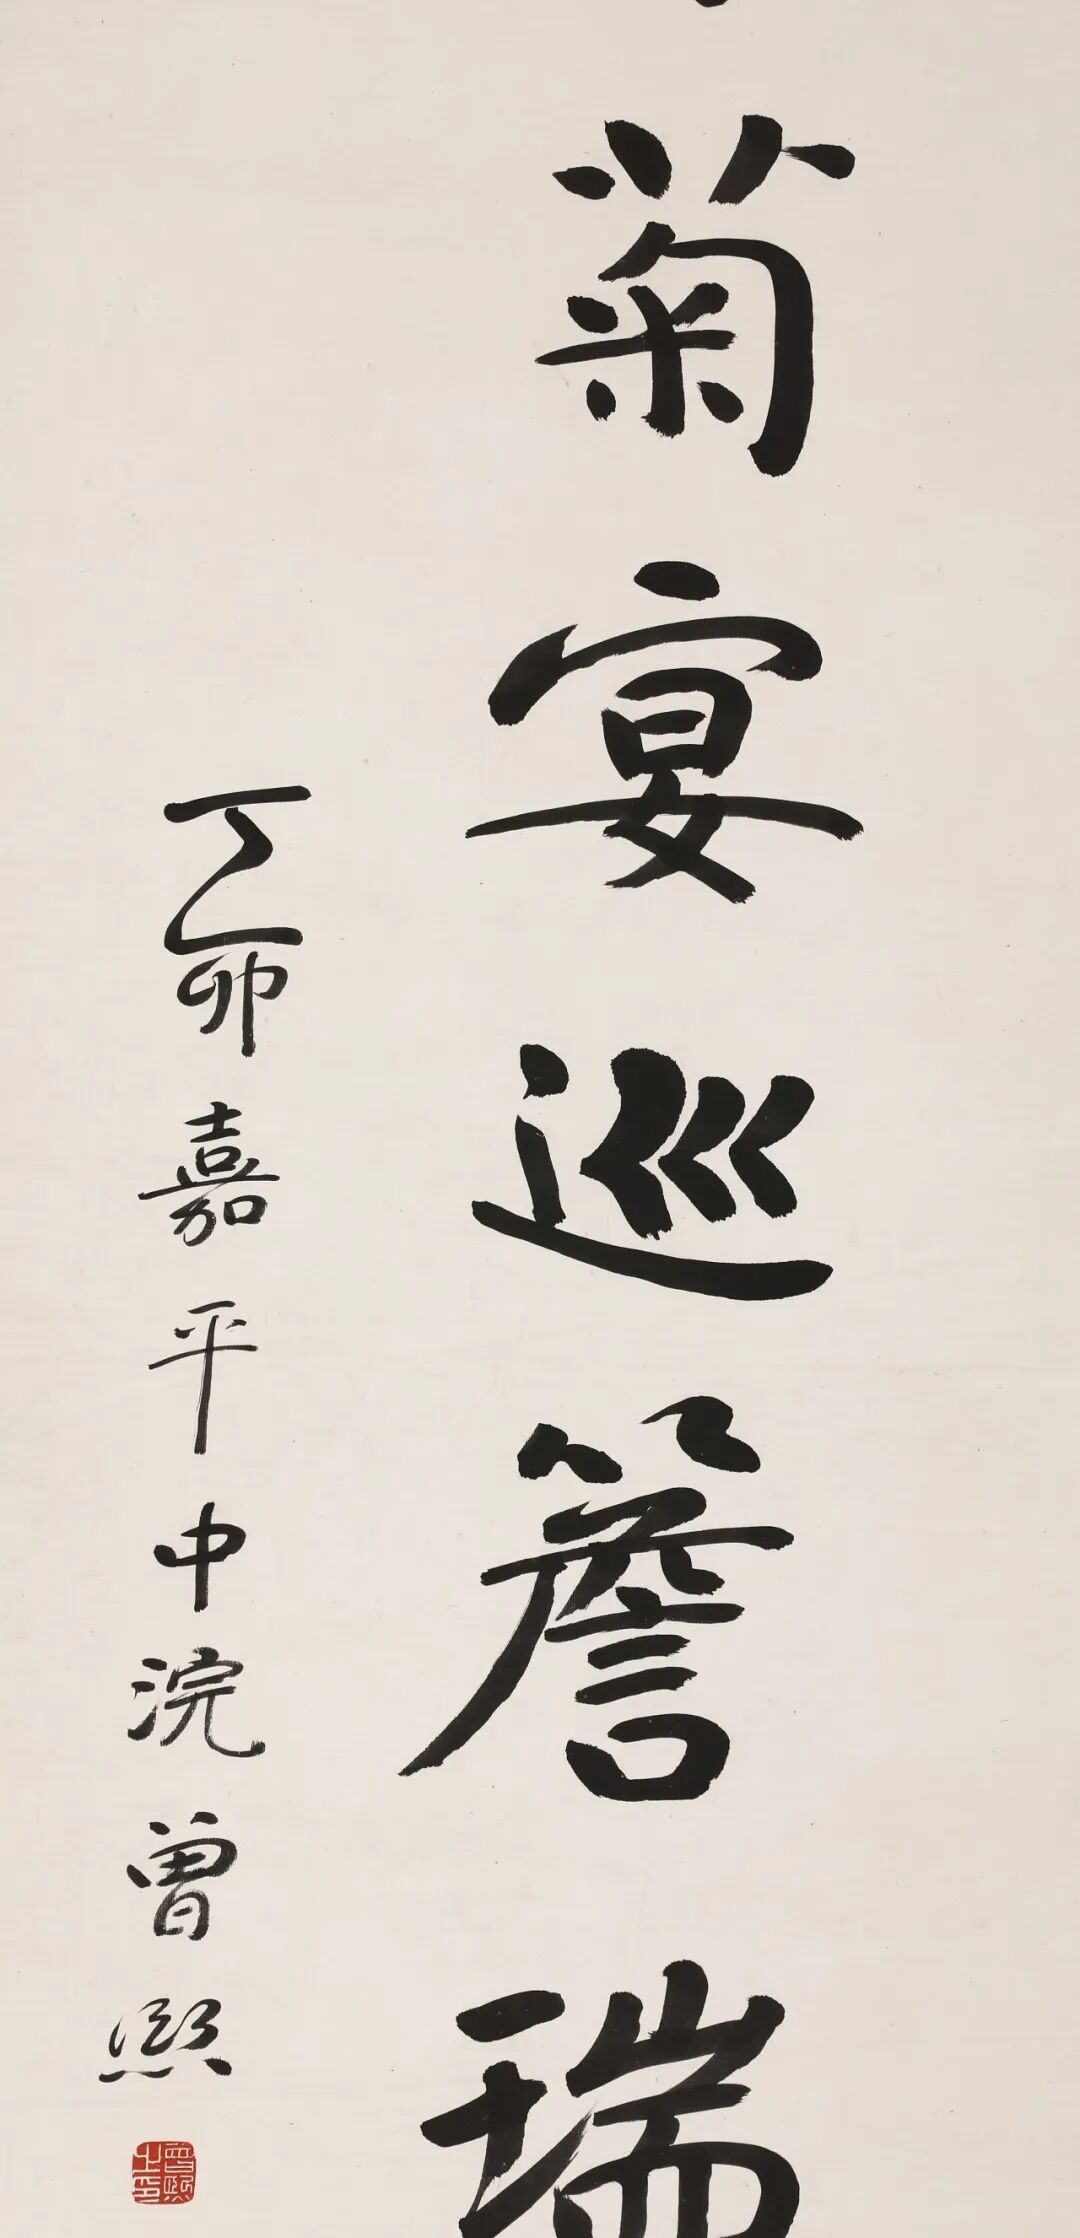 菊宴巡簷瑞
丁卯嘉平中浣曾熙
曾熙之印